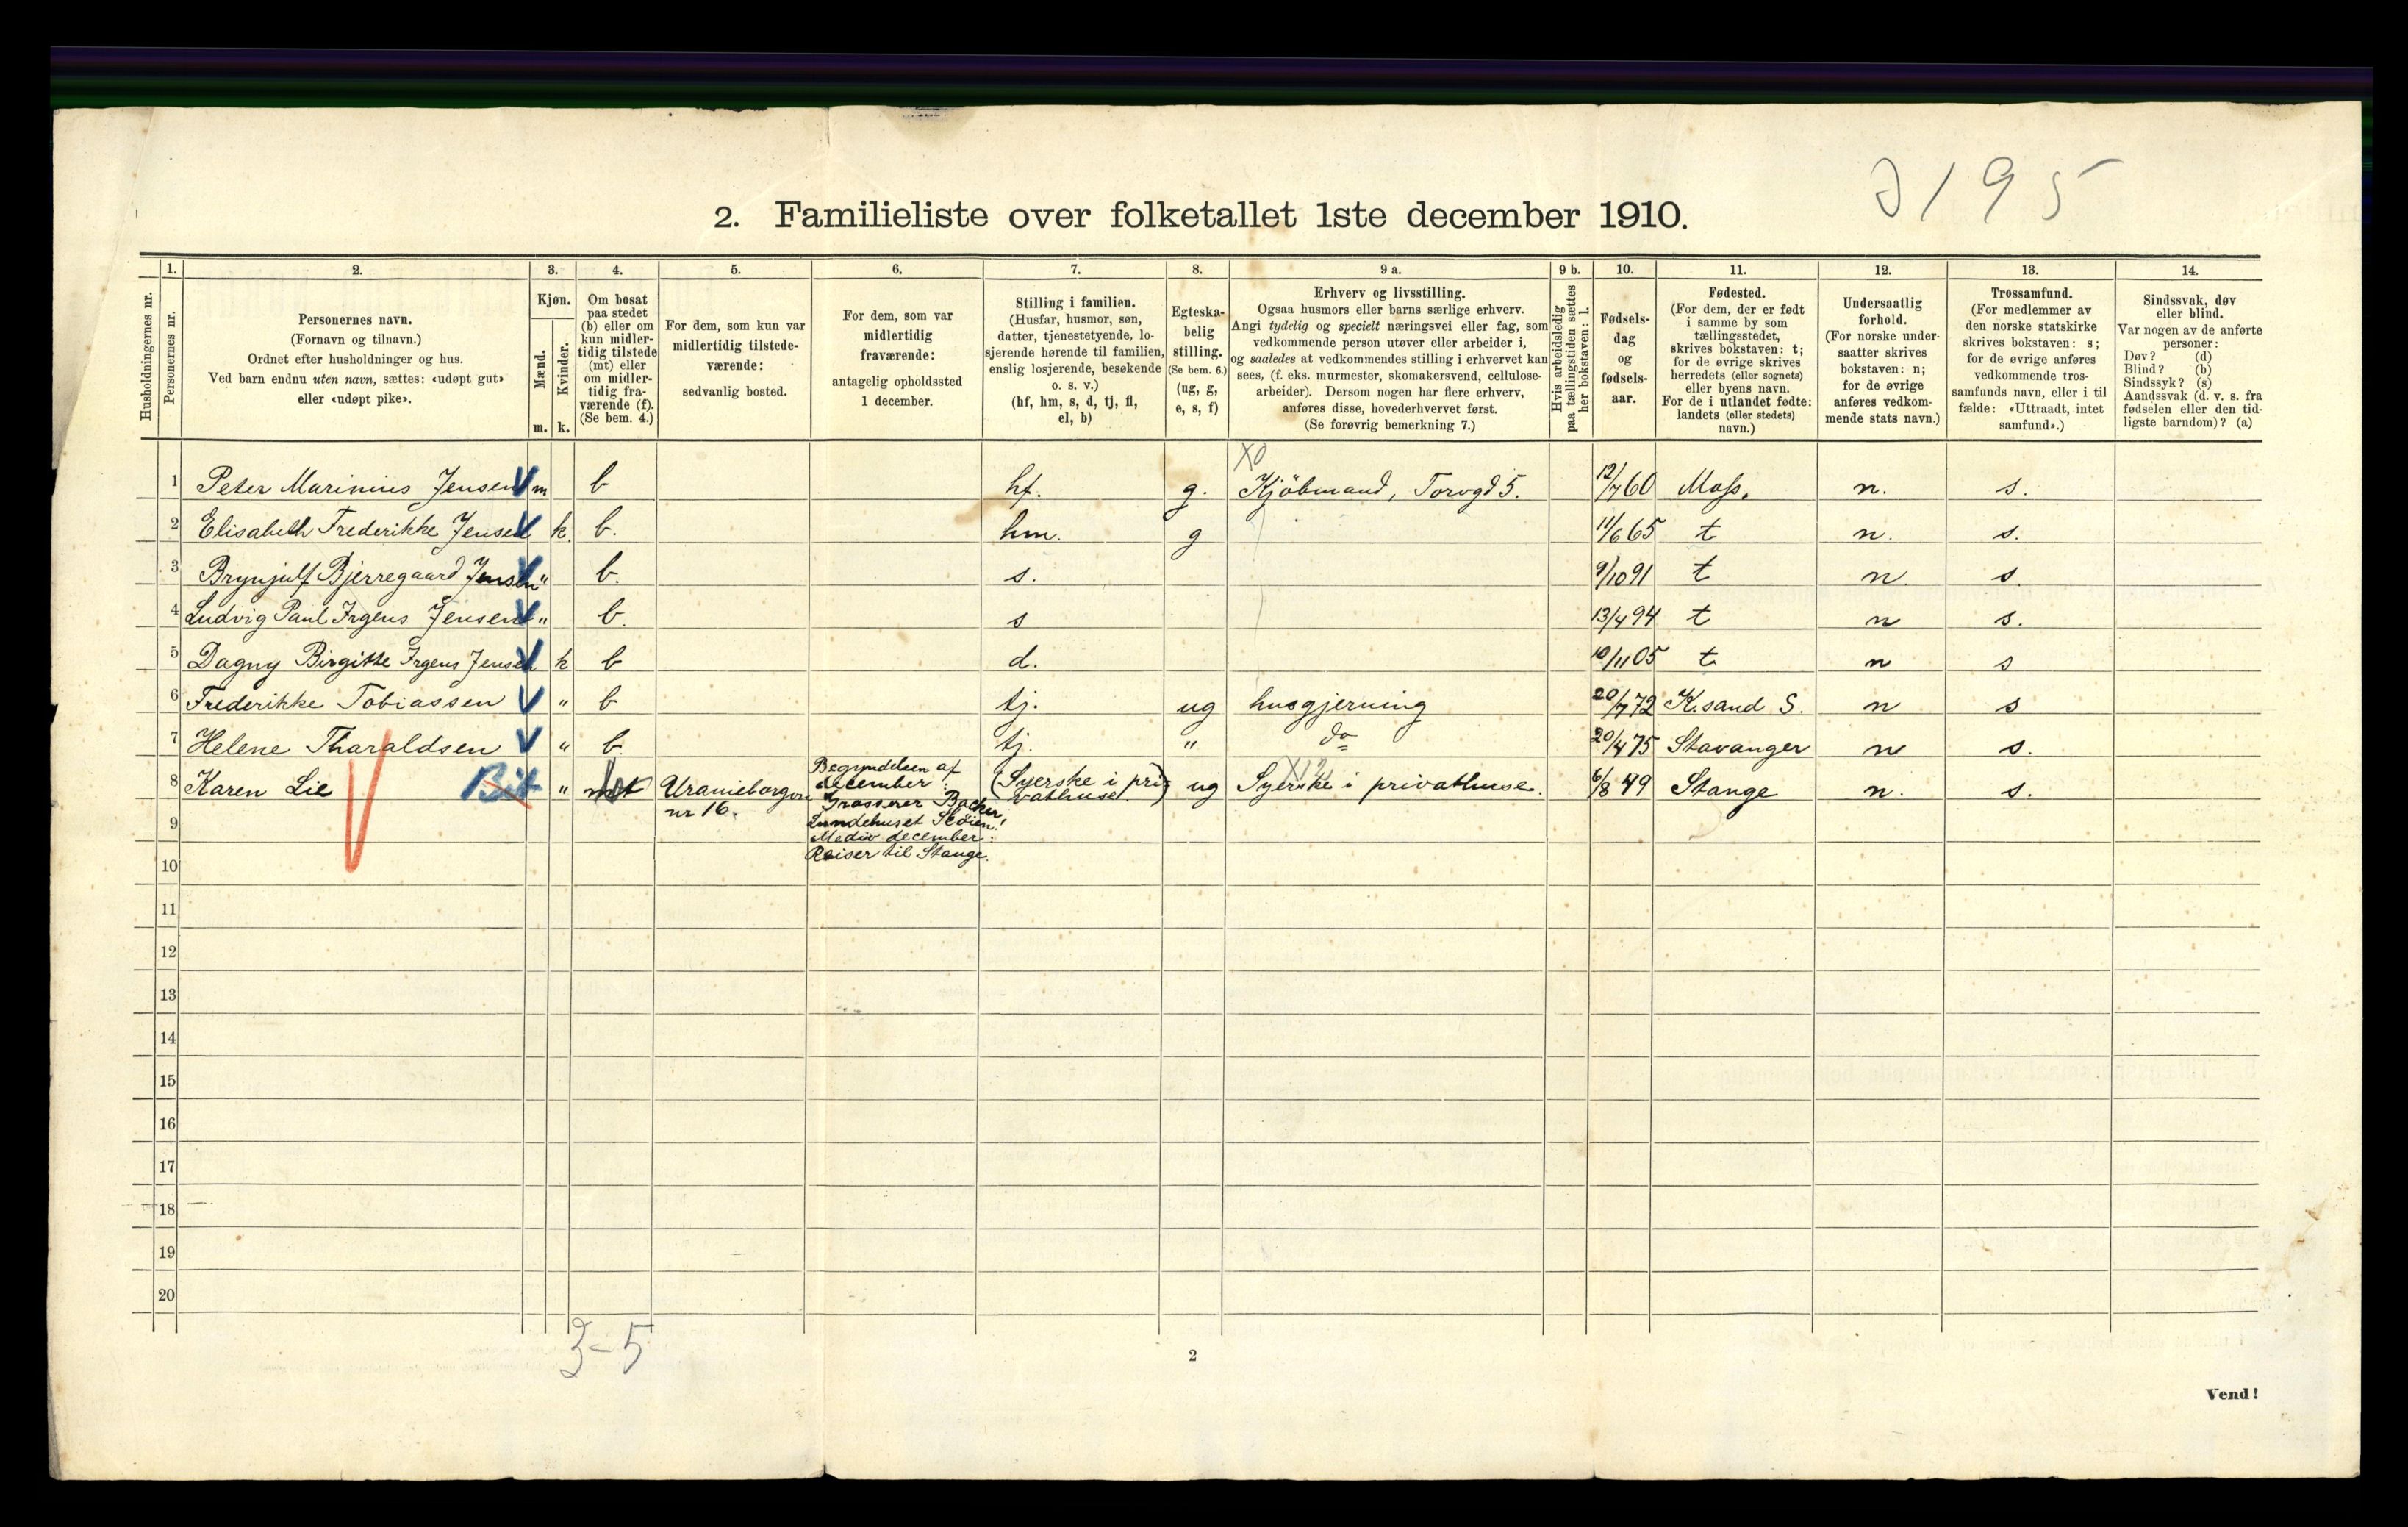 3195
2. Familieliste over folketallet 1ste december 1910.
Husholdningernes nr.
1. 2. 3. 4. 5. 6. 7. 8. 9 a. 9 b. 10. 11. 12. 13. 14.
Personernes nr.
Personernes navn.
(Fornavn og tilnavn.)
Ordnet efter husholdninger og hus.
Ved barn endnu uten navn, sættes: «udøpt gut»
eller «udøpt pike».
Kjøn.
Mænd.
Kvinder.
m. k.
Om bosat
paa stedet
(b) eller om
kun midler-
tidig tilstede
(mt) eller
om midler-
tidig fra-
værende (f).
(Se bem. 4.)
For dem, som kun var
midlertidig tilstede-
værende:
sedvanlig bosted.
For dem, som var
midlertidig
fraværende:
antagelig opholdssted
1 december.
Stilling i familien.
(Husfar, husmor, søn,
datter, tjenestetyende, lo-
sjerende hørende til familien,
enslig losjerende, besøkende
o. s. v.)
(hf, hm, s, d, tj, fl,
el, b)
Egteska-
belig
stilling.
(Se bem. 6.)
(ug, g,
e, s, f)
Erhverv og livsstilling.
Ogsaa husmors eller barns særlige erhverv.
Angi tydelig og specielt næringsvei eller fag, som
vedkommende person utøver eller arbeider i,
og saaledes at vedkommendes stilling i erhvervet kan
sees, (f. eks. murmester, skomakersvend, cellulose-
arbeider). Dersom nogen har flere erhverv,
anføres disse, hovederhvervet først.
(Se forøvrig bemerkning 7.)
Hvis arbeidsledig
paa tællingstiden sættes
her bokstaven: l.
Fødsels-
dag
og
fødsels-
aar.
Fødested.
(For dem, der er født
i samme by som
tællingsstedet,
skrives bokstaven: t;
for de øvrige skrives
herredets (eller sognets)
eller byens navn.
For de i utlandet fødte:
landets (eller stedets)
navn.)
Undersaatlig
forhold.
(For norske under-
saatter skrives
bokstaven: n;
for de øvrige
anføres vedkom-
mende stats navn.)
Trossamfund.
(For medlemmer av
den norske statskirke
skrives bokstaven: s;
for de øvrige anføres
vedkommende tros-
samfunds navn, eller i til
fælde: «Uttraadt, intet
samfund».)
Sindssvak, døv
eller blind.
Var nogen av de anførte
personer:
Døv? (d)
Blind? (b)
Sindssyk? (s)
Aandssvak (d. v. s. fra
fødselen eller den tid-
ligste barndom)? (a)
X0
1 Peter Marinius Jensen m b hf. g. Kjöbmand, Torvgd 5. 12/7 60 Moss. n. s.
2 Elisabeth Frederikke Jensen k. b. hm. g 11/6 65 t n. s.
3 Brynjulf Bjerregaard Jensen " b. s. 9/10 91 t n. s.
4 Ludvig Paul Irgens Jensen " b. s 13/4 94 t n s.
5 Dagny Birgitte Irgens Jensen k b d. 10/11 05 t n s
6 Frederikke Tobiassen " b tj. ug husgjerning 20/7 72 K.sand S. n s
7 Helene Tharaldsen " b. tj. " do 20/4 75 Stavanger n s.
8 Karen Lie " Uranieborgvn nr 16. Begyndelsen af december: Grosserer Backer, Lundehuset Sköien. Mediv december: Reiser til Stange. (Syerske i privathuse.) ug Syerske i privathuse. 6/8 49 Stange n. s.
9
10
11
12
13
14
15
16
17
18
19
20
3-5
2
Vend!